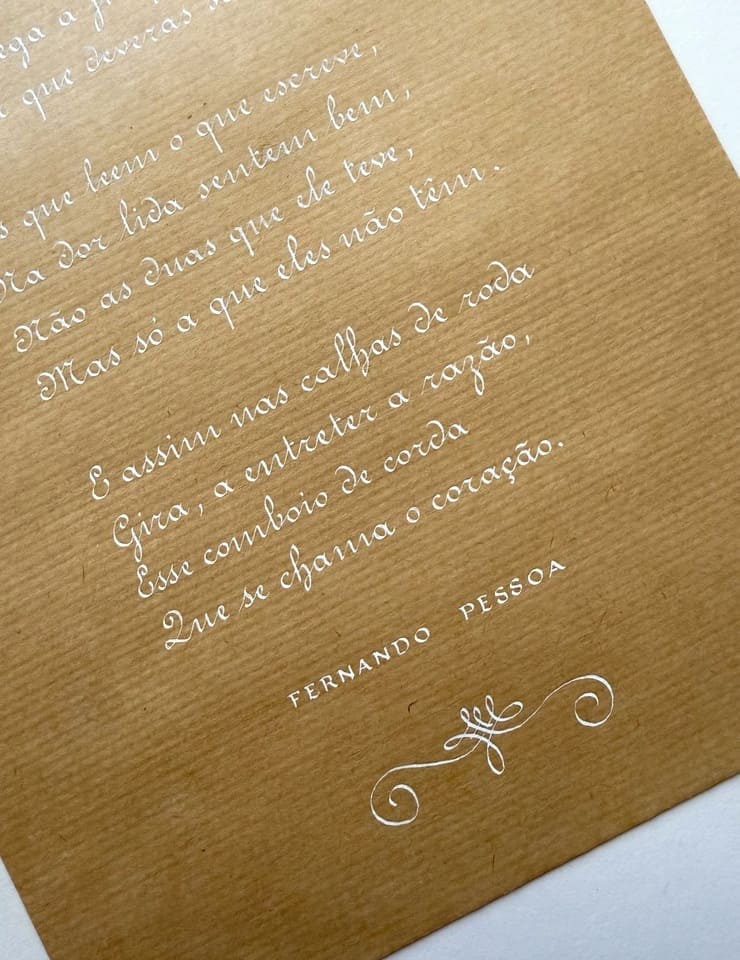 que deveras
que leem o que escreve,
Na dor lida sentem bem,
Não as duas que ele teve,
Mas só a que eles não têm.
E assim nas calhas de roda
Gira, a entreter a razão,
Esse comboio de corda
Que se chama o coração.
FERNANDO PESSOA